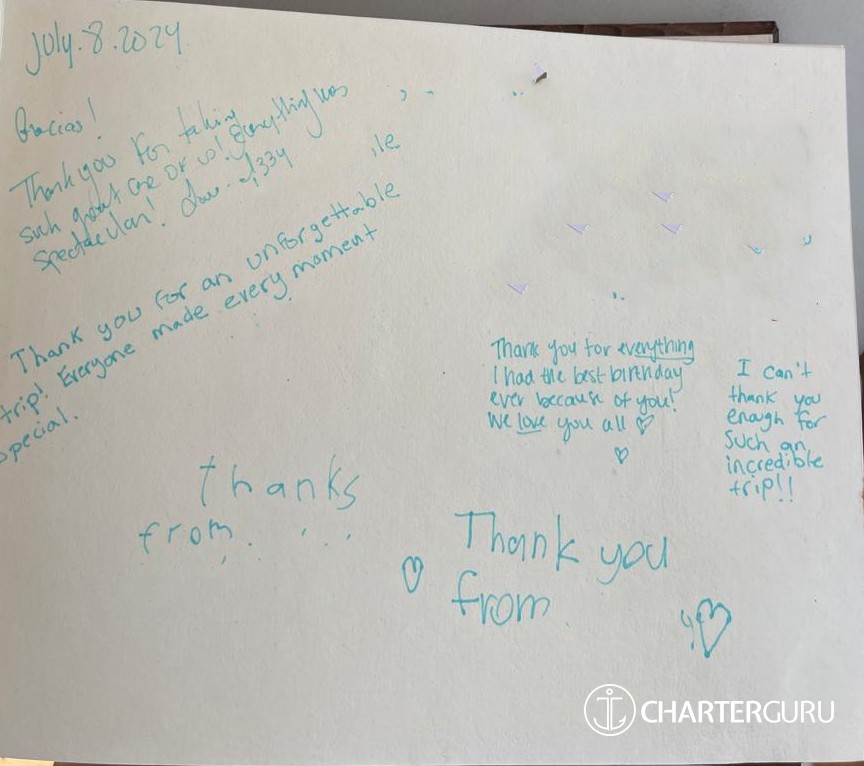 July.8.2024
Gracias!
Thank you for taking
such great care of us! Everything was
spectacular!
Thank you for an unforgettable
trip! Everyone made every moment
special.
Thank you for everything
I had the best birthday
ever because of you!
We love you all
I can't
thank you
enough for
such an
incredible
trip!!
thanks
from
Thank you
from
CHARTERGURU